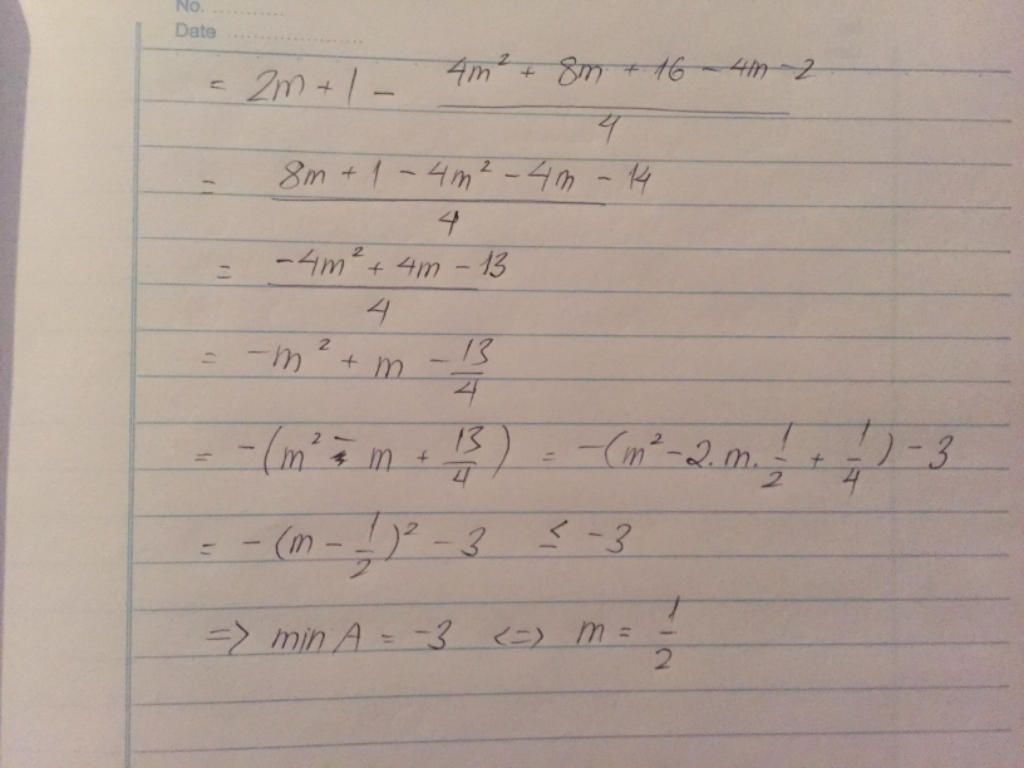 No. ............
Date .......................
= 2m + 1 - (4m² + 8m + 16 - 4m - 2)/4
= (8m + 1 - 4m² - 4m - 14)/4
= (-4m² + 4m - 13)/4
= -m² + m - 13/4
= -(m² - m + 13/4) = -(m² - 2.m.1/2 + 1/4) - 3
= -(m - 1/2)² - 3 ≤ -3
=> min A = -3 <=> m = 1/2